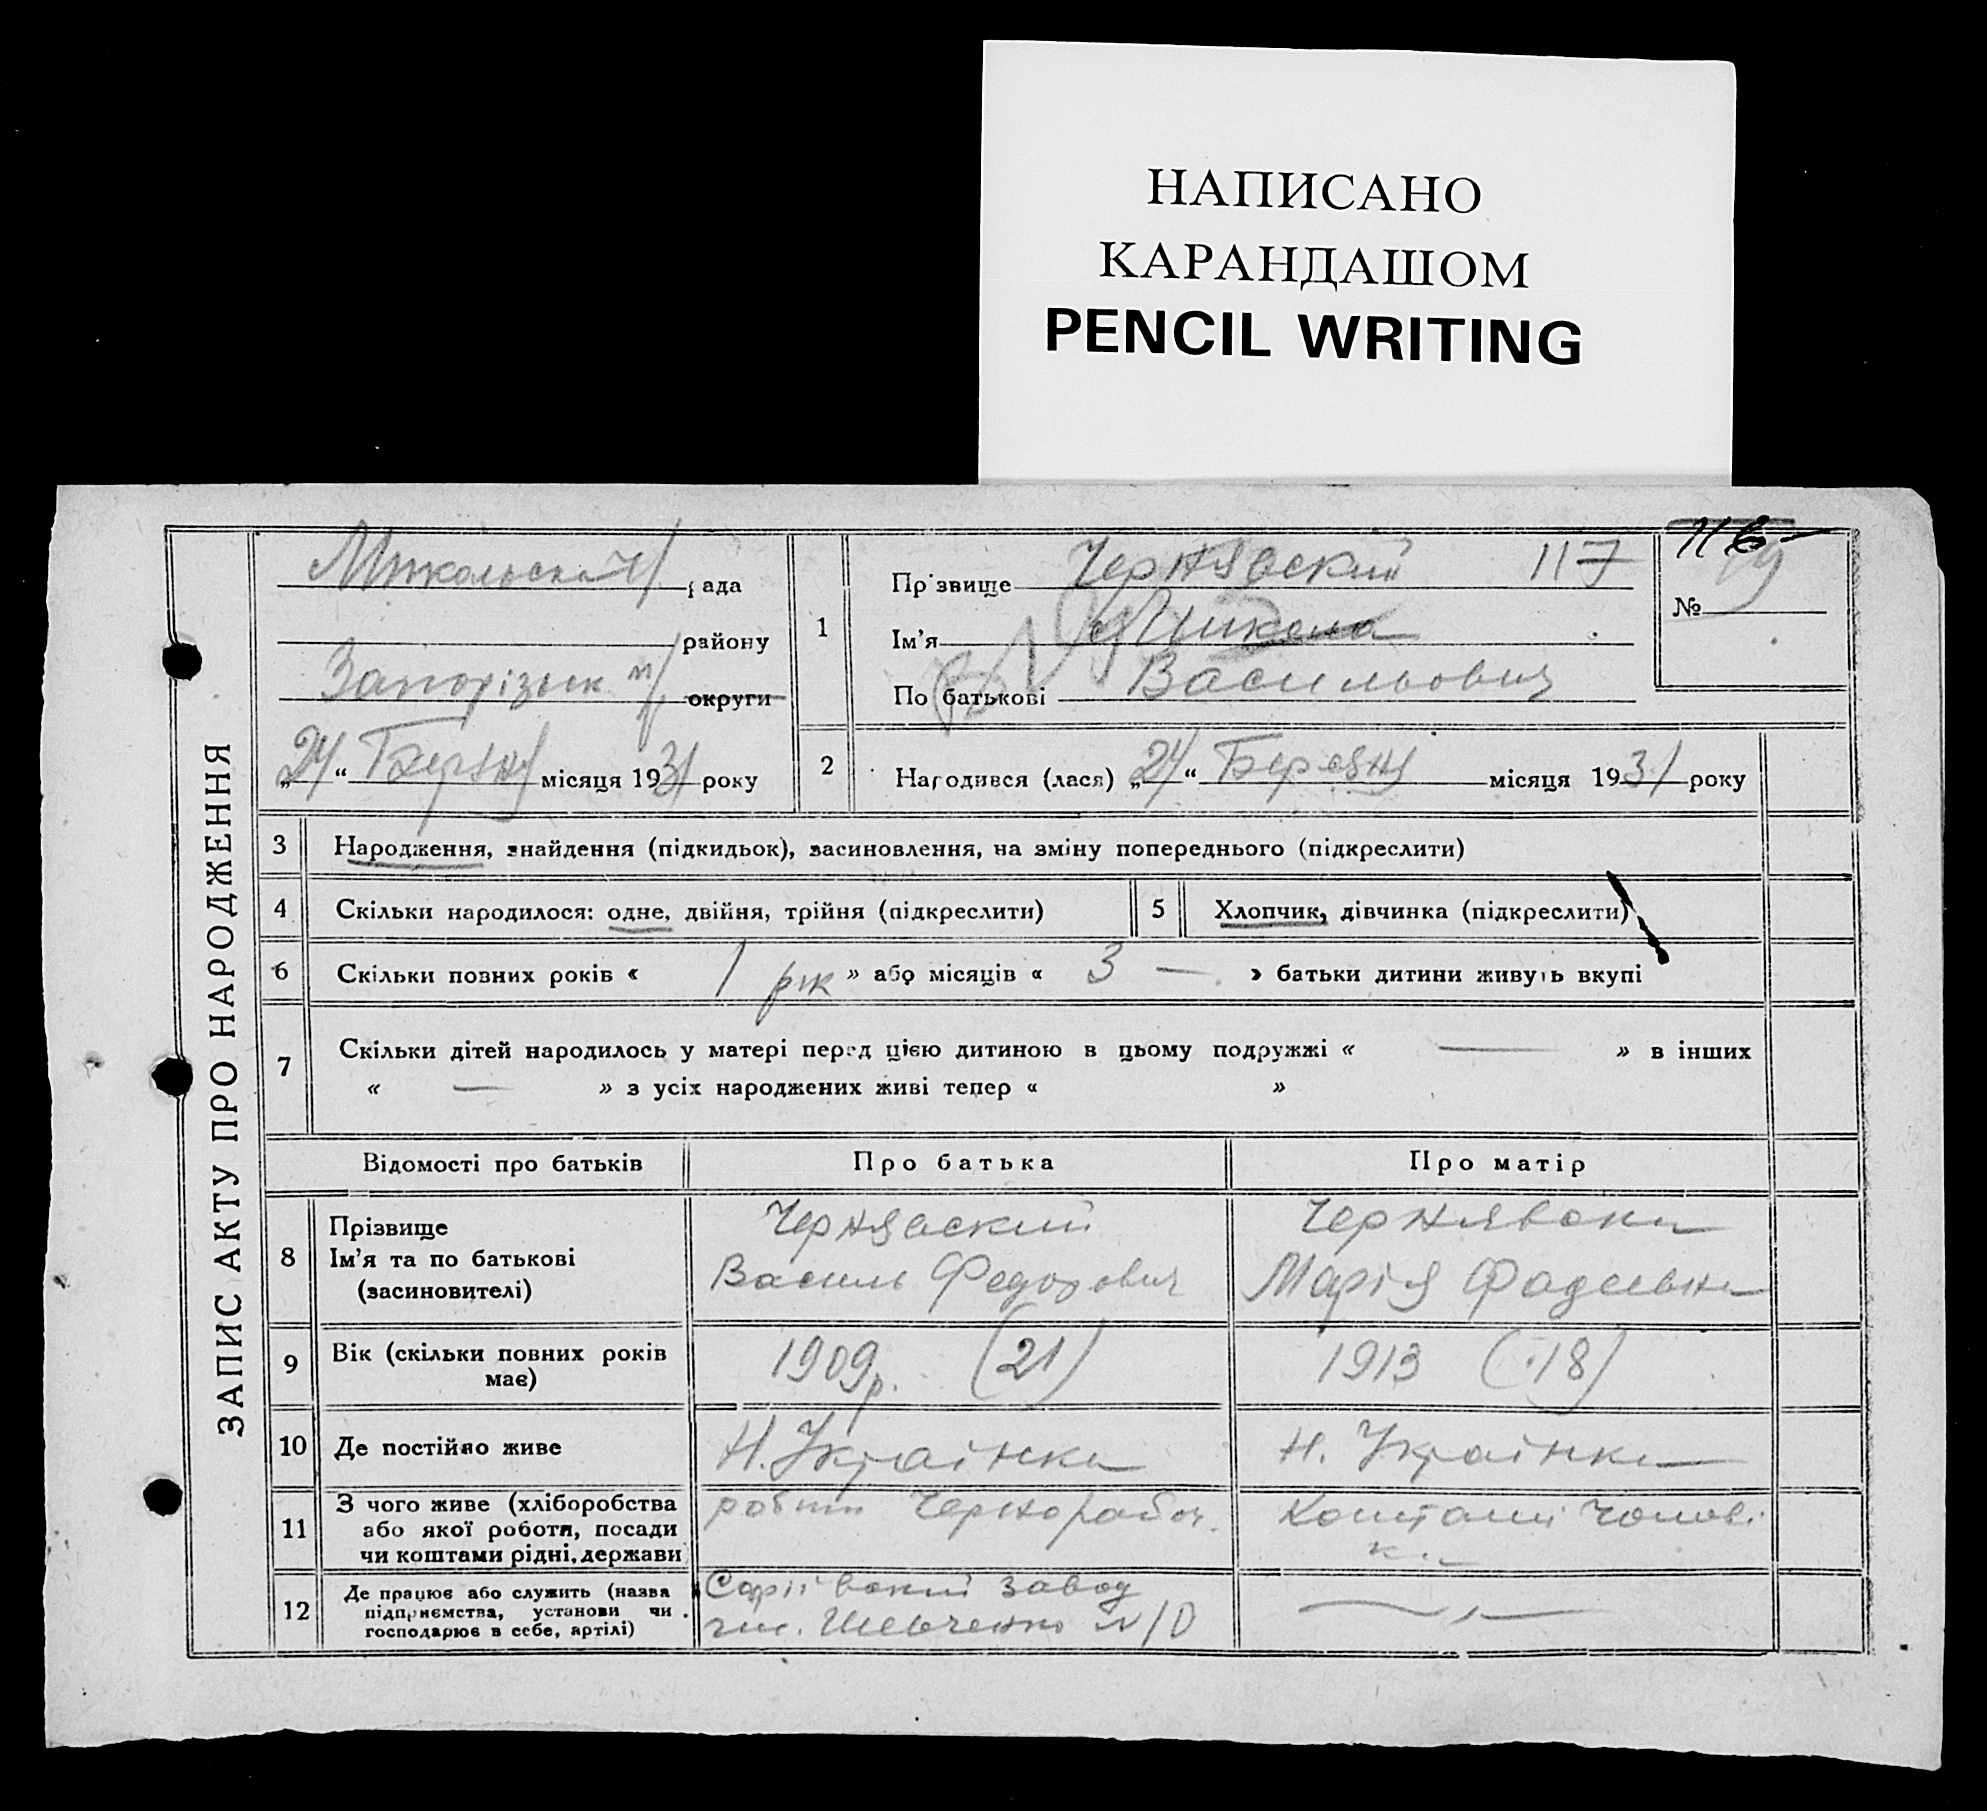 НАПИСАНО
КАРАНДАШОМ
PENCIL WRITING
ЗАПИС АКТУ ПРО НАРОДЖЕННЯ
рада
району
округи
„24“ місяця 1931 року
1
Прізвище Чернявский 117
Ім’я
По батькові Васильович
116
№ 19
2 Народився (лася) „24“ Березня місяця 1931 року
3 Народження, знайдення (підкидьок), засиновлення, на зміну попереднього (підкреслити)
4 Скільки народилося: одне, двійня, трійня (підкреслити)
5 Хлопчик, дівчинка (підкреслити)
6 Скільки повних років « 1 рік » або місяців « 3 — » батьки дитини живуть вкупі
7 Скільки дітей народилось у матері перед цією дитиною в цьому подружжі « — » в інших
« — » з усіх народжених живі тепер « »
Відомості про батьків Про батька Про матір
8 Прізвище
Ім’я та по батькові
(засиновителі)
Чернявский
Василь Федорович
Чернявска
Марія Фадеевна
9 Вік (скільки повних років
має)
1909р. (21)
1913 (18)
10 Де постійно живе
Н. Українка
Н. Українка
11 З чого живе (хліборобства
або якої роботи, посади
чи коштами рідні, держави
робітн Чернорабоч.
Коштами чолові
к.
12 Де працює або служить (назва
підприємства, установи чи
господарює в себе, артілі)
завод
Шевченко